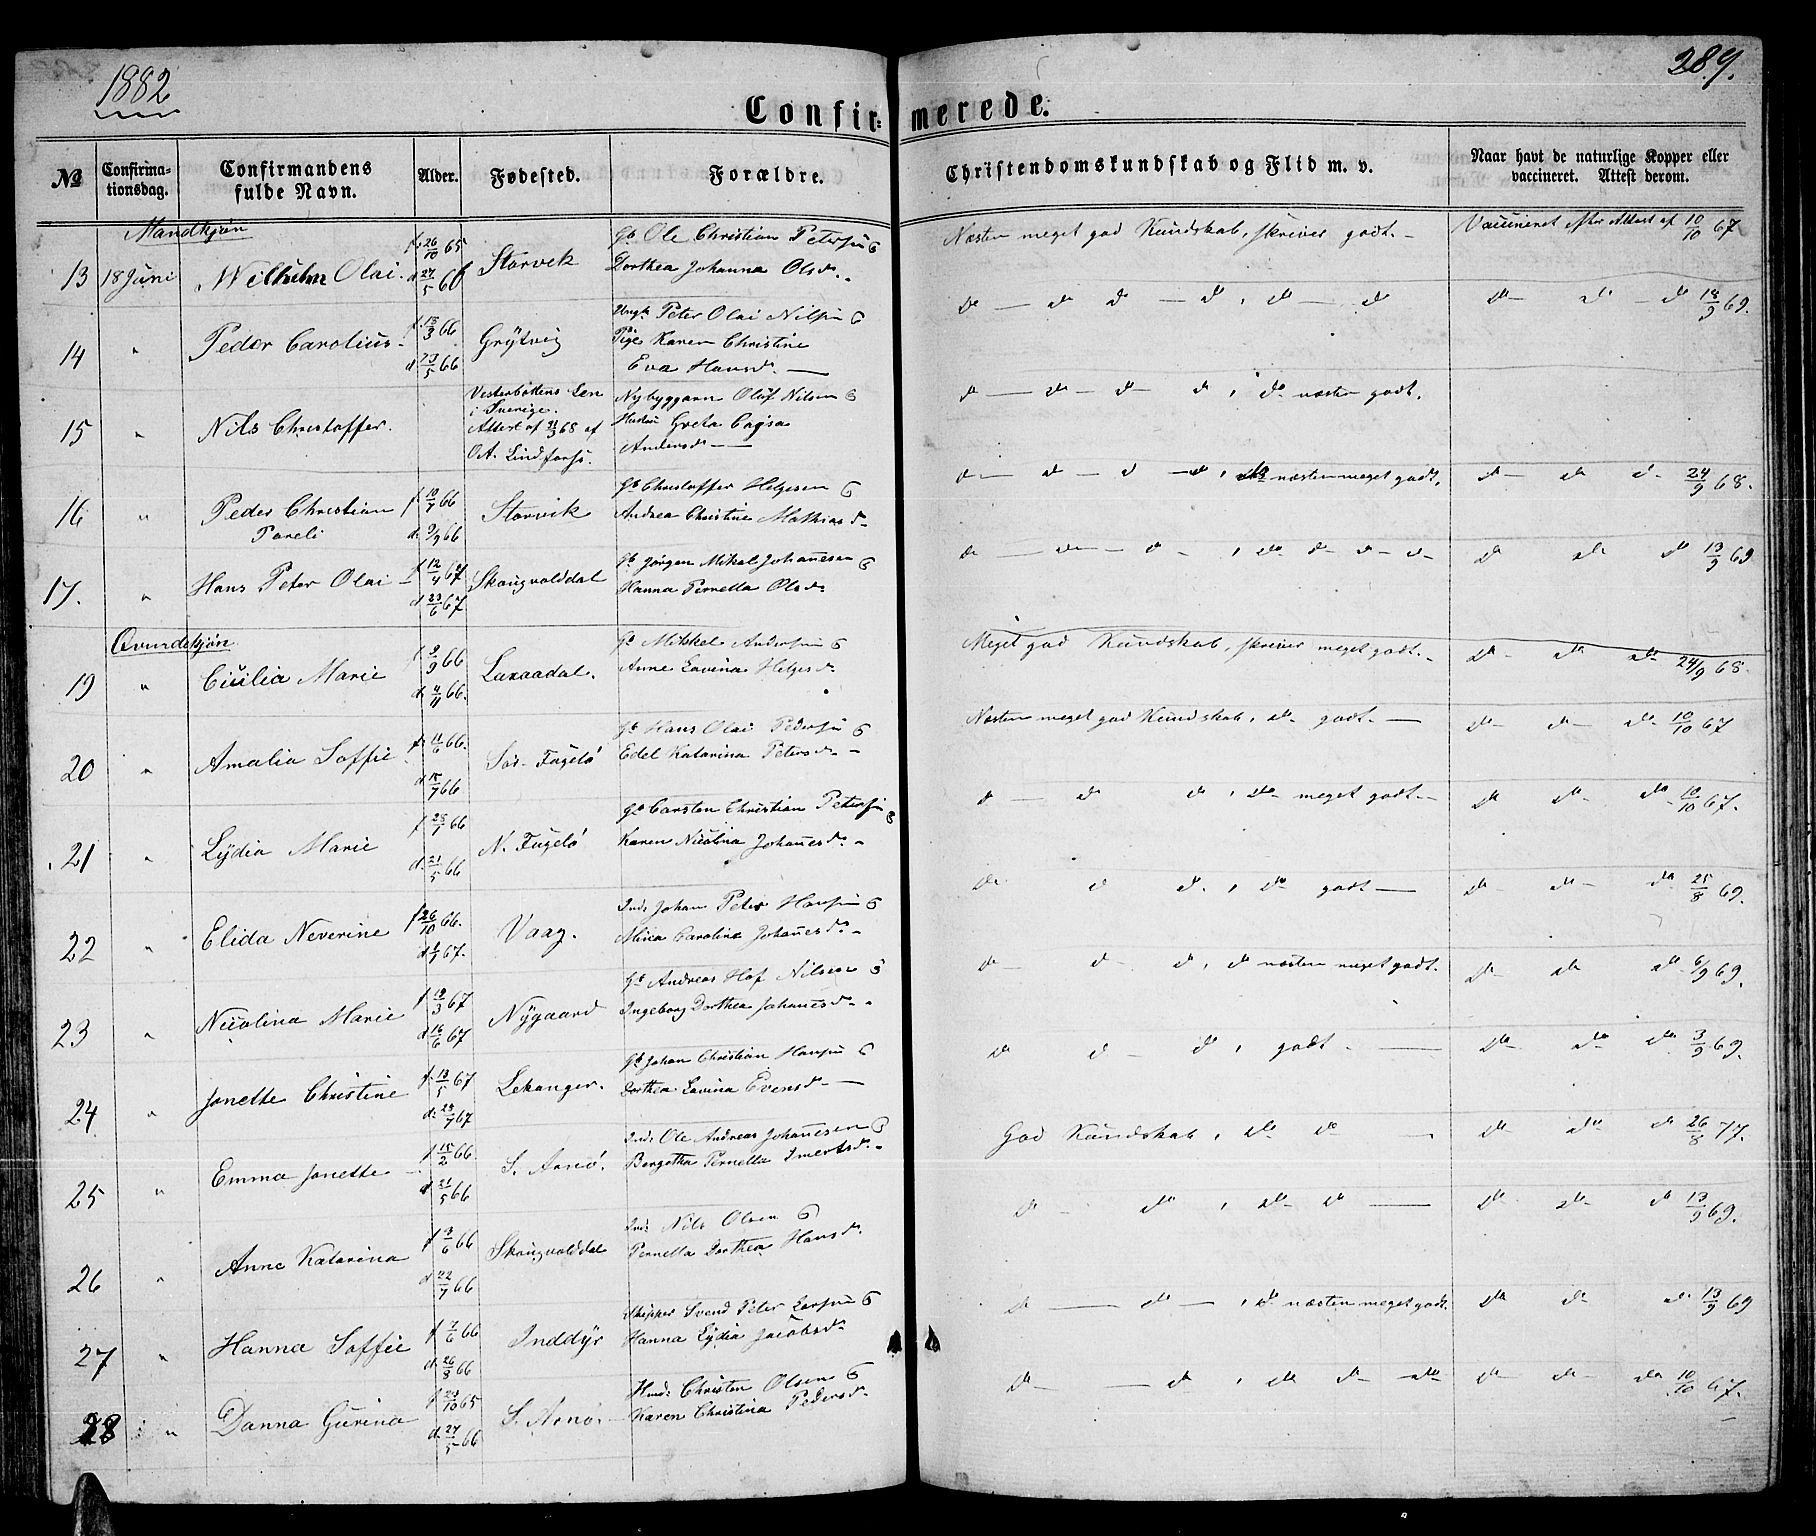 1882
289.
Confir- merede.
№ Confirmationsdag. Confirmandens fulde Navn. Alder. Fødested. Forældre. Christendomskundskab og Flid m. v. Naar havt de naturlige Kopper eller vaccineret. Attest derom.
Mandkjøn
13 18 Juni Wilhelm Olai. f. 26/10 65 d 27/5 66 Storvik Gb Ole Christian Petersen & Dorthea Johanna Olsd. Næsten meget god Kundskab, skriver godt. Vaccineret efter Attest af 10/10 67
14 " Peder Carolius f. 13/3 66 d 23/5 66 Grytvig Ungk. Peter Olai Nilsen & Pige Karen Christine Eva Hansd. do do do do, do do do do do 18/9 69.
15 " Nils Christoffer. Vesterbottens Len i Sverige. Attest af 21/3 68 af O.A. Lindforss. Nybyggarn Olof Nilsen & Hustru Greta Cajsa Andersd. do do do do, do næsten godt.
16 " Peder Christian Pareli f. 10/7 66 d. 9/9 66 Storvik Gb Christoffer Helgesen & Andrea Christine Mathiasd. do do do do, do næsten meget godt, do do do 24/9 68.
17. " Hans Peter Olai f 12/4 67 d 23/6 67 Skougvolddal Gb Jørgen Mikal Johannesen & Hanna Pernella Olsd. do do do, do do do do do do do 13/9 69
Qvindekjøn
19 " Cicilia Marie f 2/9 66 d 4/11 66. Laxaadal. Gb Mikkel Andersen & Anne Lavina Helgesd. Meget god Kundskab, skriver meget godt. do do do 24/9 68.
20 " Amalia Soffie f. 11/6 66. d 15/7 66 Sør-Fugelø Gb Hans Olai Pedersen & Edel Katarina Petersd. Næsten meget god Kundskab, do godt. do do do 10/10 67
21 " Lydia Marie f 28/1 66 d. 21/5 66 N. Fugelø Gb Carsten Christian Petersen & Karen Nicolina Johannesd. do do do, do meget godt. do do do 10/10 67.
22 " Elida Neverine f 26/10 66. d 1/1 67. Vaag. Inds Johan Peter Hansen & Mina Carolina Johannesd. do do do, do godt do do do 25/8 69.
23 " Nicolina Marie f 19/3 67 d 16/6 67 Nygaard Gb Andreas Hof Nilsen & Ingeborg Dorthea Johannesd. do do do, do næsten meget godt. do do do 6/9 69.
24 " Jonette Christine f. 13/5 67 d: 23/7 67 Lekanger. Gb Johan Christian Hansen & Dorthea Lavina Evensd. do do do, godt. do do do 3/9 69.
25 " Emma Jonette f 15/2 66 d 21/5 66 S. Arnø. Inds Ole Andreas Johannesen & Bergetha Pernella Imertsd. God Kundskab, do do do do do 26/8 77.
26 " Anne Katarina f 3/6 66 d 22/7 66 Skougvolddal Inds Nils Olsen & Pernella Dorthea Hansd. do do, do do do do do 13/9 69.
27 " Hanna Soffie f 7/6 66 d. 26/8 66 Inddyr Skipper Svend Peter Larsen & Hanna Lydia Jacobsd. do do, do næsten meget godt. do do do 13/9 69
28 " Danna Gurina f 23/10 65 d. 27/5 66 S. Arnø. Husm. Christen Olsen & Karen Christina Pedersd. do do, do do do do do do 10/10 67.